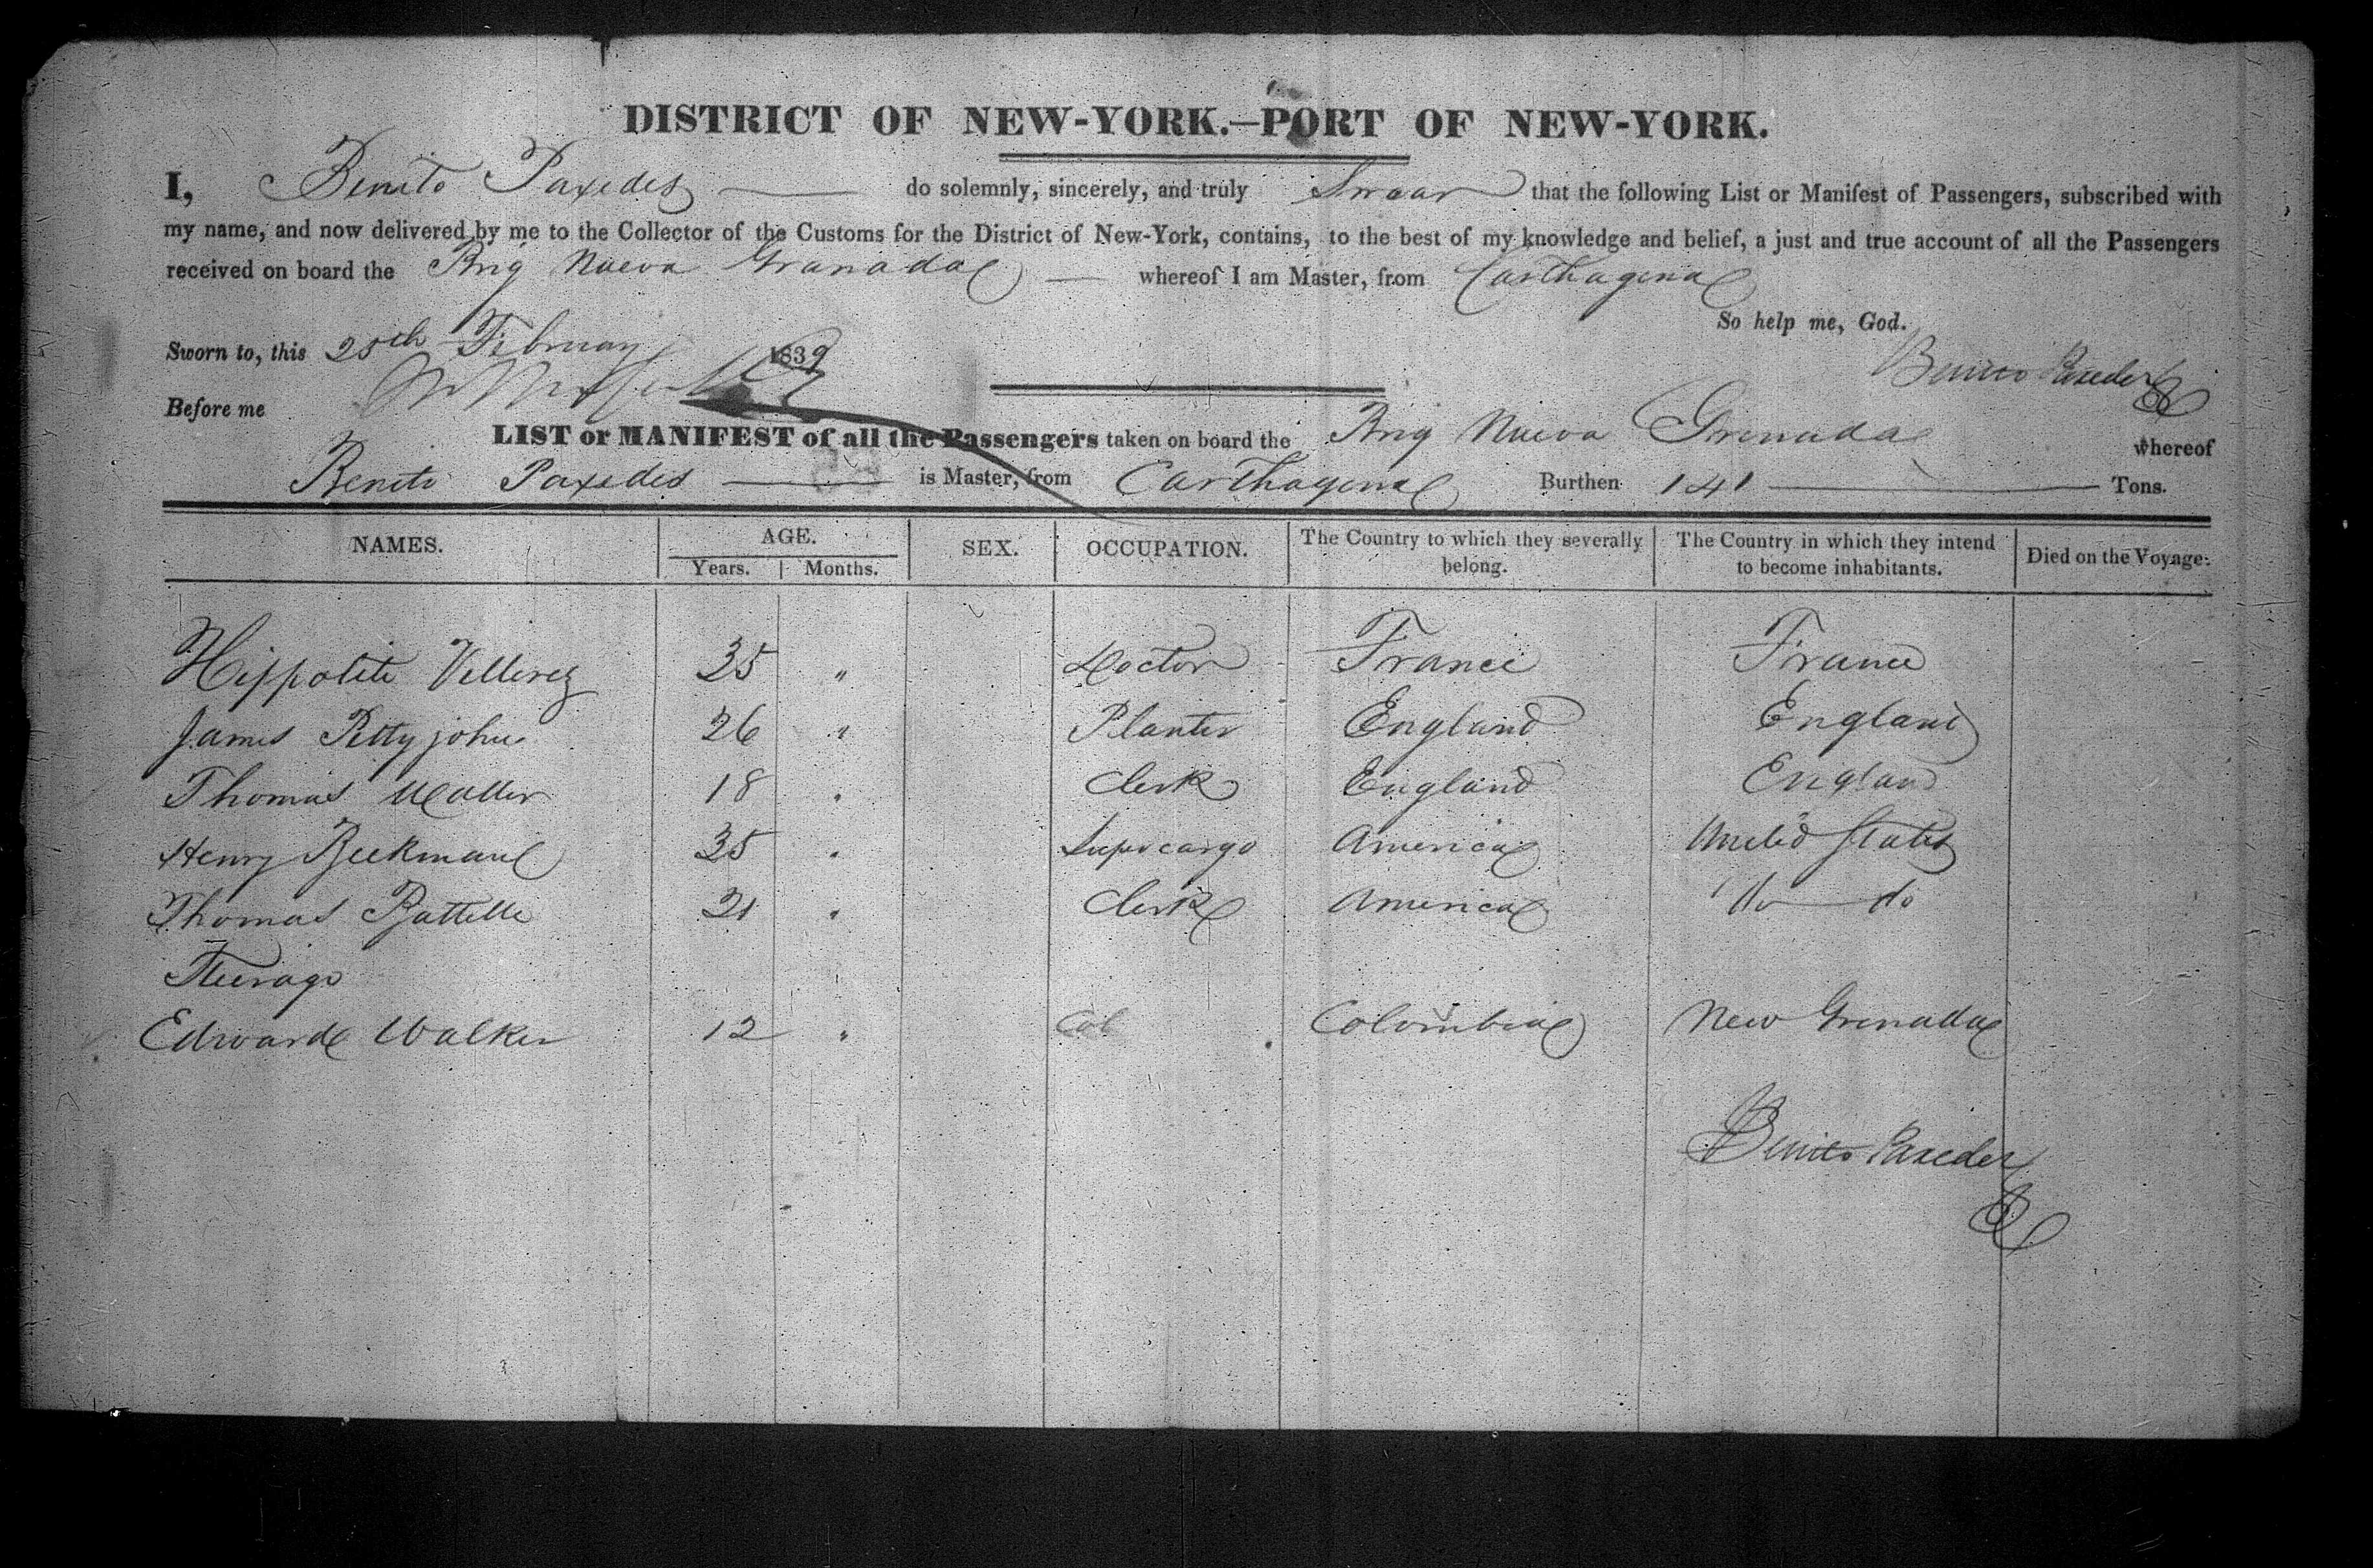 DISTRICT OF NEW-YORK.—PORT OF NEW-YORK.
I, Benito Paxedes do solemnly, sincerely, and truly Swear that the following List or Manifest of Passengers, subscribed with
my name, and now delivered by me to the Collector of the Customs for the District of New-York, contains, to the best of my knowledge and belief, a just and true account of all the Passengers
received on board the Brig Nueva Granada — whereof I am Master, from Carthagena
So help me, God.
Sworn to, this 25th February 1839
Benito Paxedes
Before me
LIST or MANIFEST of all the Passengers taken on board the Brig Nueva Grenada whereof
Benito Paxedes is Master, from Carthagena Burthen 141 Tons.
NAMES. AGE. SEX. OCCUPATION. The Country to which they severally belong. The Country in which they intend to become inhabitants. Died on the Voyage.
Years. Months.
Hippolite 35 " Doctor France France
James Pettyjohn 26 " Planter England England
Thomas 18 " Clerk England England
Henry Beekman 35 " Supercargo America United States
Thomas Battelle 21 " Clerk America do do
Steerage
Edward Walker 12 " Colombia New Grenada
Benito Paxedes